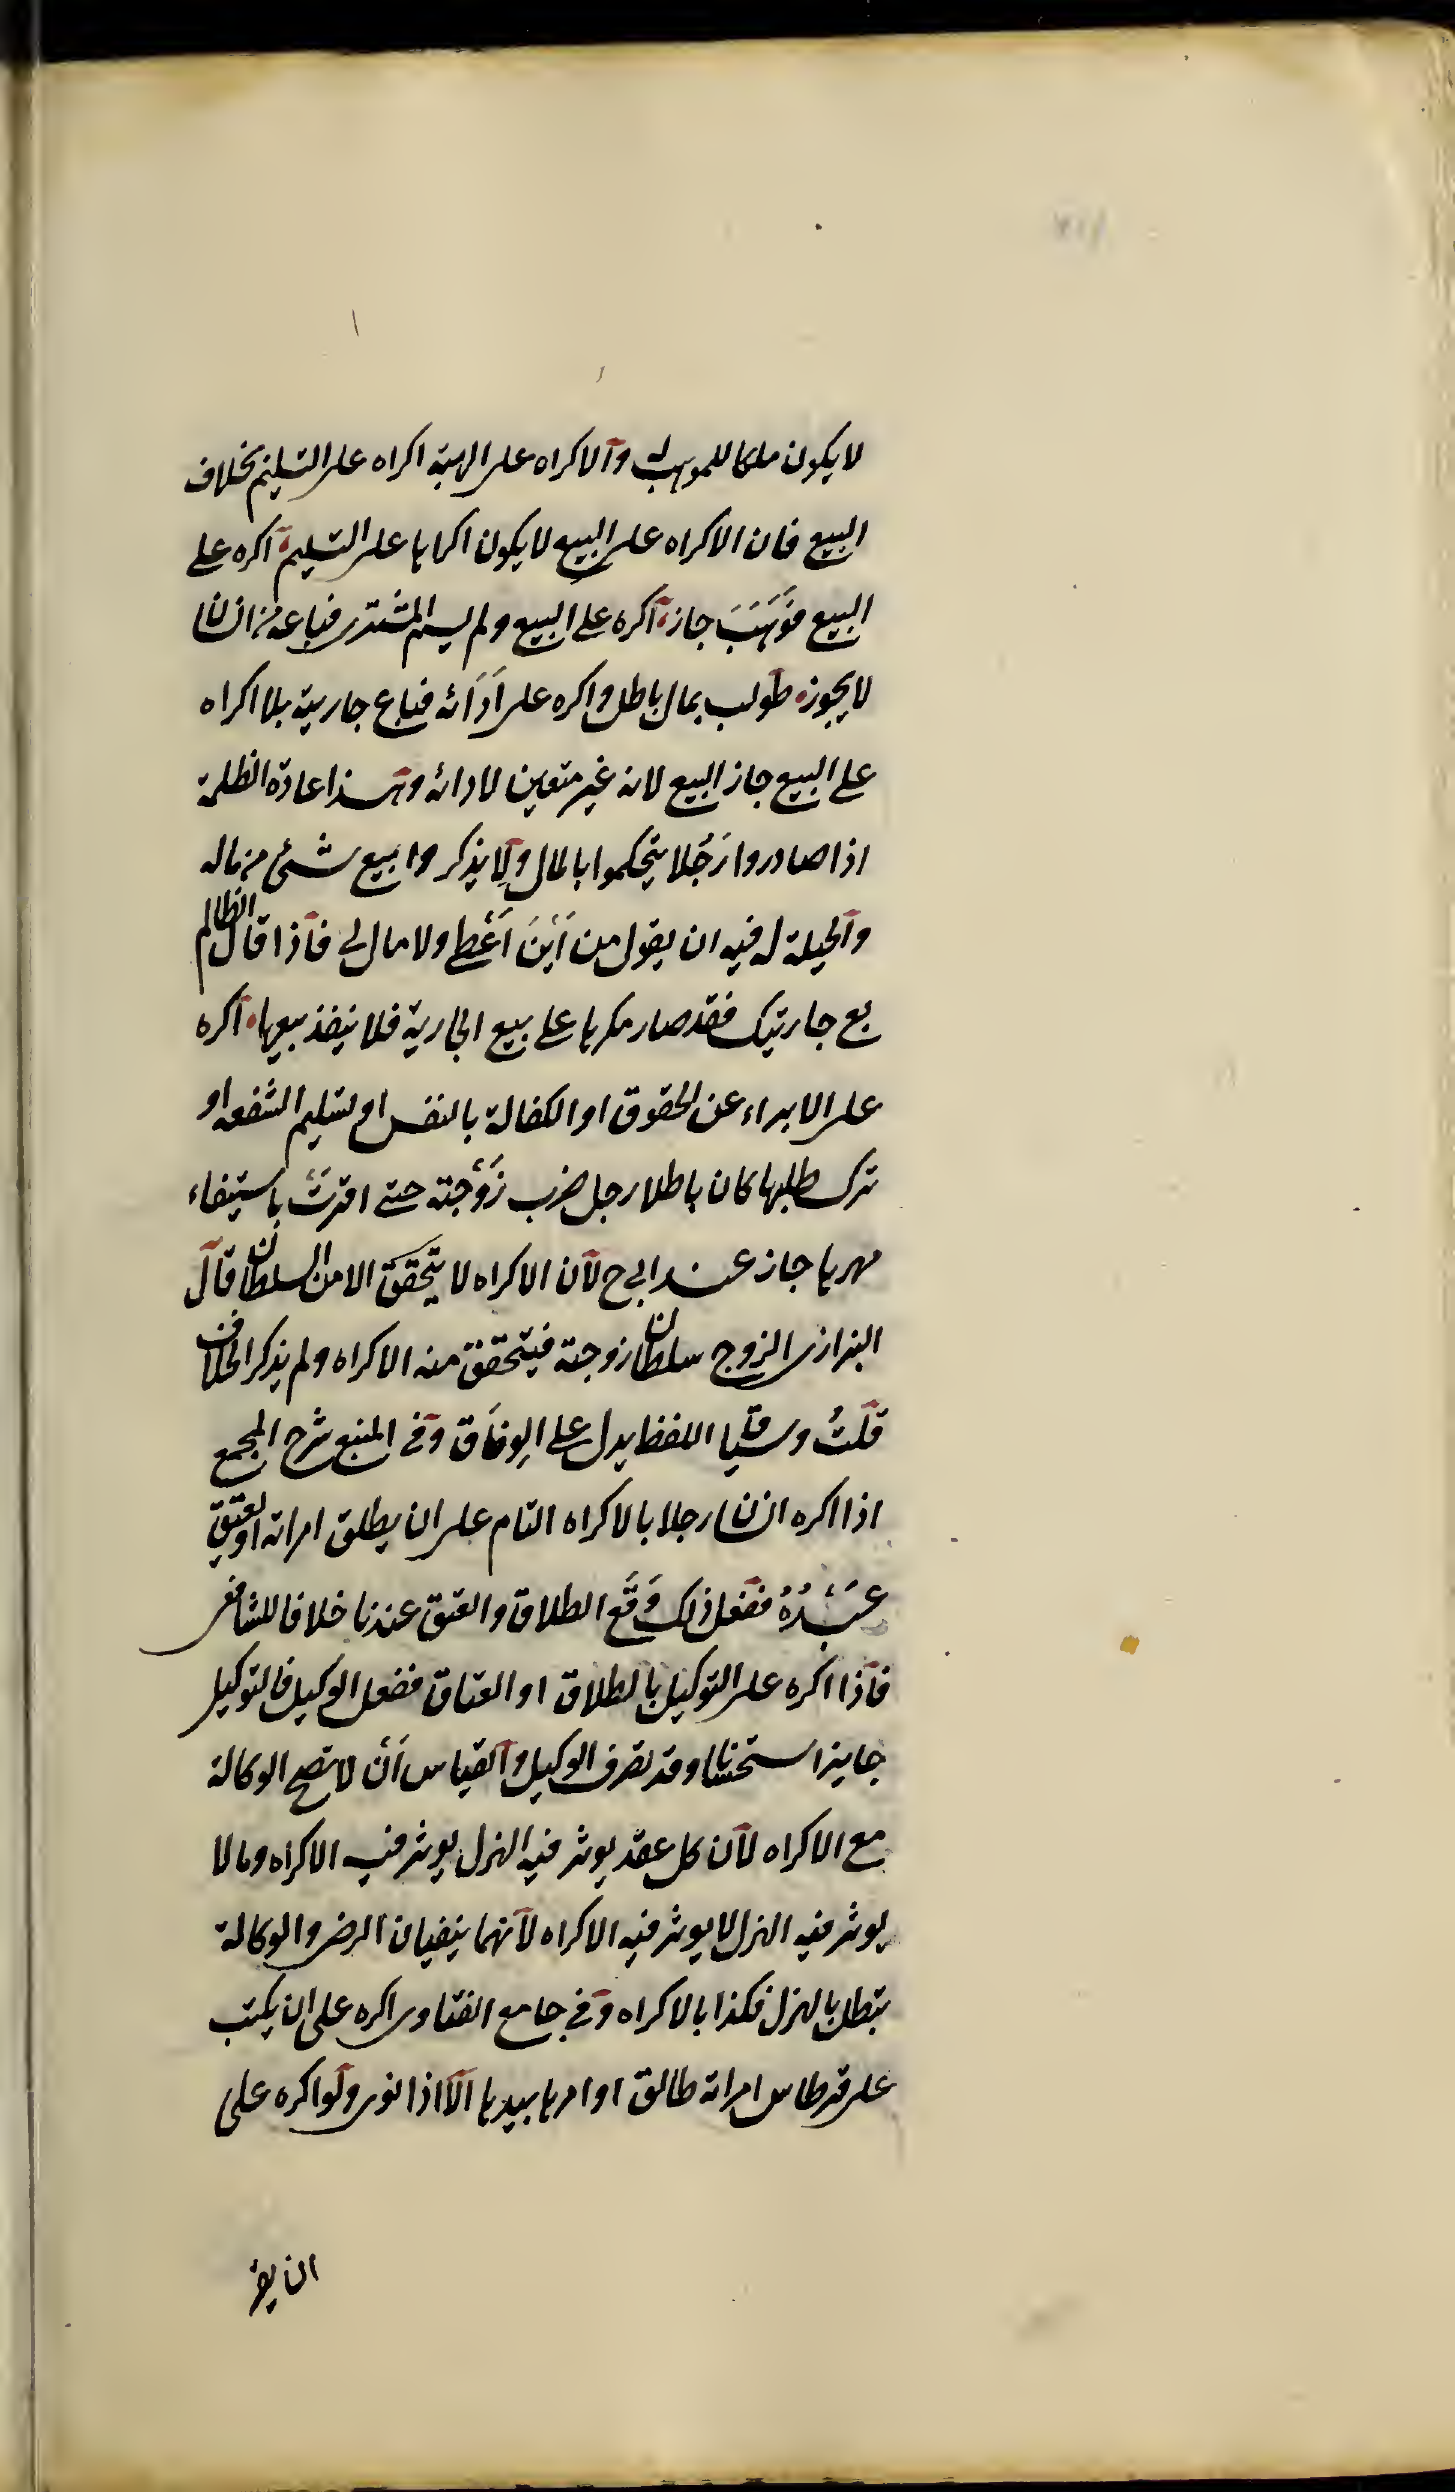 لا يكون ملكا للموهوب له والاكراه على الهبة اكراه على التسليم بخلاف
البيع فان الاكراه على البيع لا يكون اكراها على التسليم اكره على
البيع فَوَهَبَ جاز اكره على البيع ولم يسم المشترى فباعه من انسان
لا يجوز طولب بمال باطل واكره على اَدَائه فباع جاريته بلا اكراه
على البيع جاز البيع لانه غير متعين لادائه وهذا عادة الظلمة
اذا صادروا رَجُلا يتحكموا بالمال ولا يذكروا بيع شئ من ماله
والحيلة له فيه ان يقول من اَيْنَ اَعْطى ولا مال لى فاذا قال الظالم
بع جاريتك فقد صار مكرها على بيع الجارية فلا ينفذ بيعها اكره
على الابراء عن الحقوق او الكفالة بالنفس او تسليم الشفعه او
ترك طلبها كان باطلا رجل ضرب زَوْجته حتى اقرتْ باستيفاء
مهرها جاز عند ابى ح لان الاكراه لا يتحقق الا من السلطان قال
البزازى الزوج سلطان زوجته فيتحقق منه الاكراه ولم يذكر الخلاف
قلتُ وسياق اللفظ يدل على الوِفَاق وفى المنبع شرح المجمع
اذا اكره انسان رجلا بالاكراه التام على ان يطلق امراته او يعتق
عَبْدُهُ ففعل ذلك وَقَع الطلاق والعتق عندنا خلافا للشافعى
فاذا اكره على التوكيل بالطلاق او العتاق ففعل الوكيل فالتوكيل
جايز استحسانا وقد تصرف الوكيل والقياس اَنْ لا تصح الوكالة
مع الاكراه لان كل عقد يوثر فيه الهزل يوثر فيه الاكراه وما لا
يوثر فيه الهزل لا يوثر فيه الاكراه لانهما ينفيان الرضى والوكالة
تبطل بالهزل فكذا بالاكراه وفى جامع الفتاوى اكره على ان يكتب
على قرطاس امراته طالق او امرها بيدها الا اذا نوى ولو اكره على
ان يقر